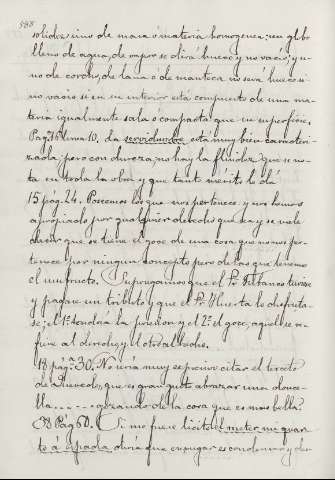 588
solidez sino de masa ó materia homogenea; un globo
lleno de agua, de vapor se dirá hueco y no vacio; y u-
no de corcho, de lana ó de manteca no será hueco si-
no vacio si en su interior está compuesto de una ma-
teria igualmente rala ó compacta que en su superficie.
Pag. 16 linea 10. La servidumbre está muy bien caracteri-
zada, pero con dureza, no hay la fluidez que se no-
ta en toda la obra y que tanto mérito le dá
15 pág. 24. Poseemos lo que nos pertenece y nos hemos
apropiado por cualquier derecho que sea y se suele
decir que se tiene el goce de una cosa que no nos per-
tenece por ningun concepto pero de las que tenemos
el usufructo. Supongamos que el Sr. tuviese
y pagase un tributo y que el Sr. Huerta le disfruta-
se; el 1º tendria la posesion y el 2º el goce, aquel se re-
fiere al derecho y el otro al hecho.
18 pág. 30. No seria muy espresivo citar el terceto
de Quevedo, que es gran gusto abrazar una donce-
lla ..... gozando de la cosa que es mas bella?
38 Pág 60. Si no fuese licito el meter mi cuar-
to á espadas diria que enjugar es condensar y de-